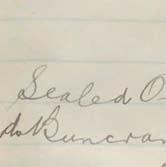 Sealed O
Buncran